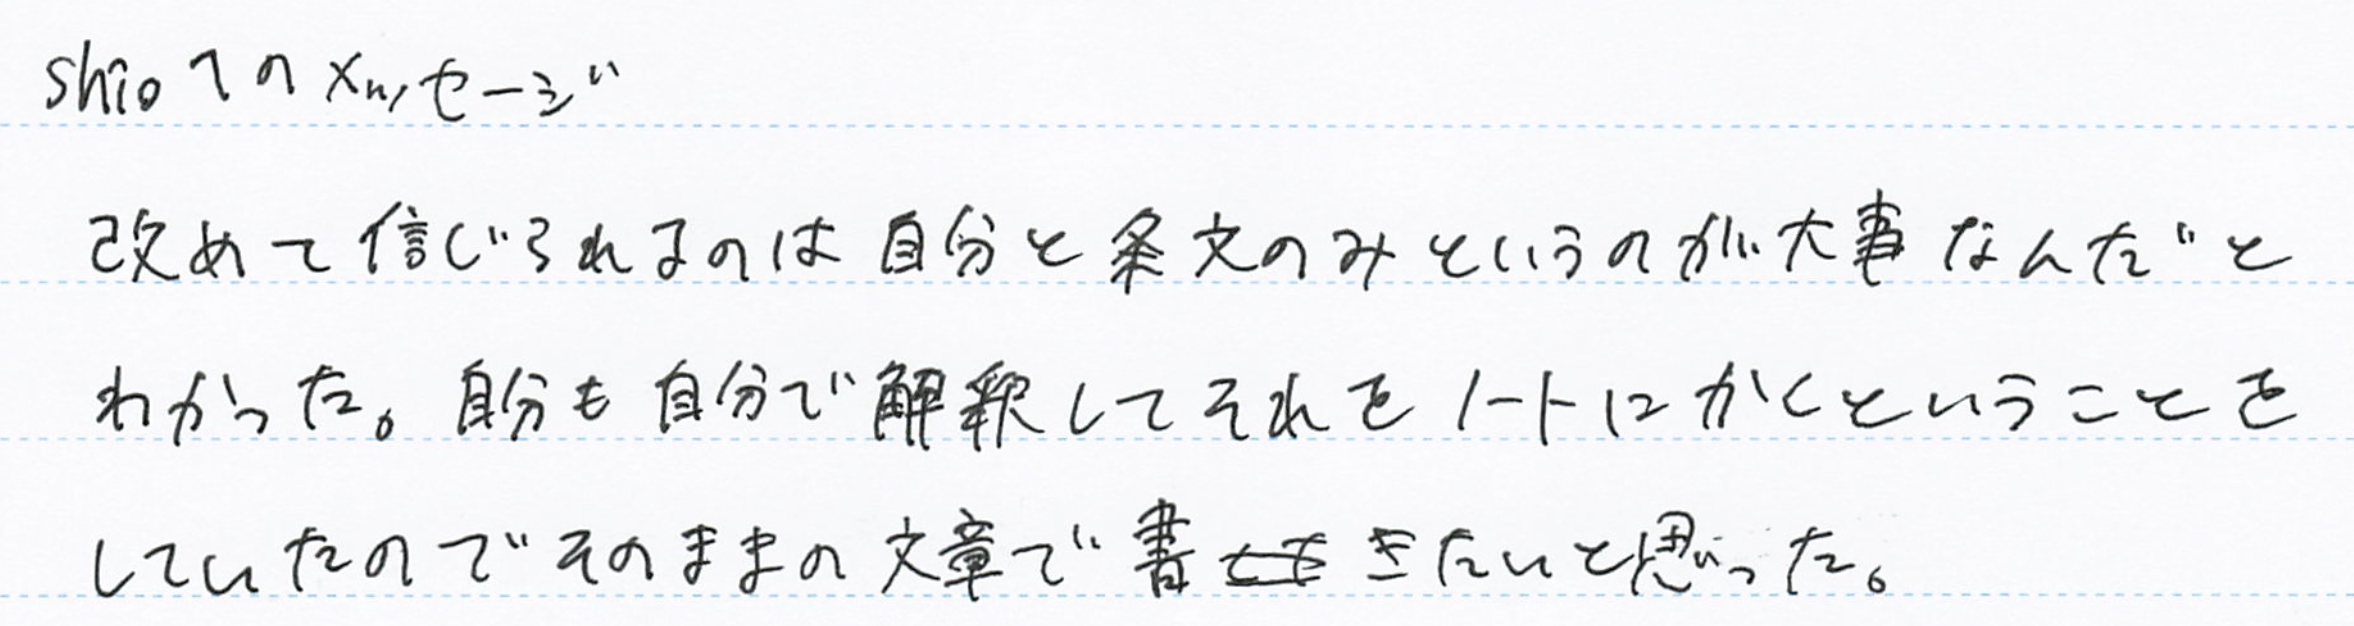 shioへのメッセージ
改めて信じられるのは自分と条文のみというのが大事なんだと
わかった。自分も自分で解釈してそれをノートにかくということを
していたのでそのままの文章で書きたいと思った。